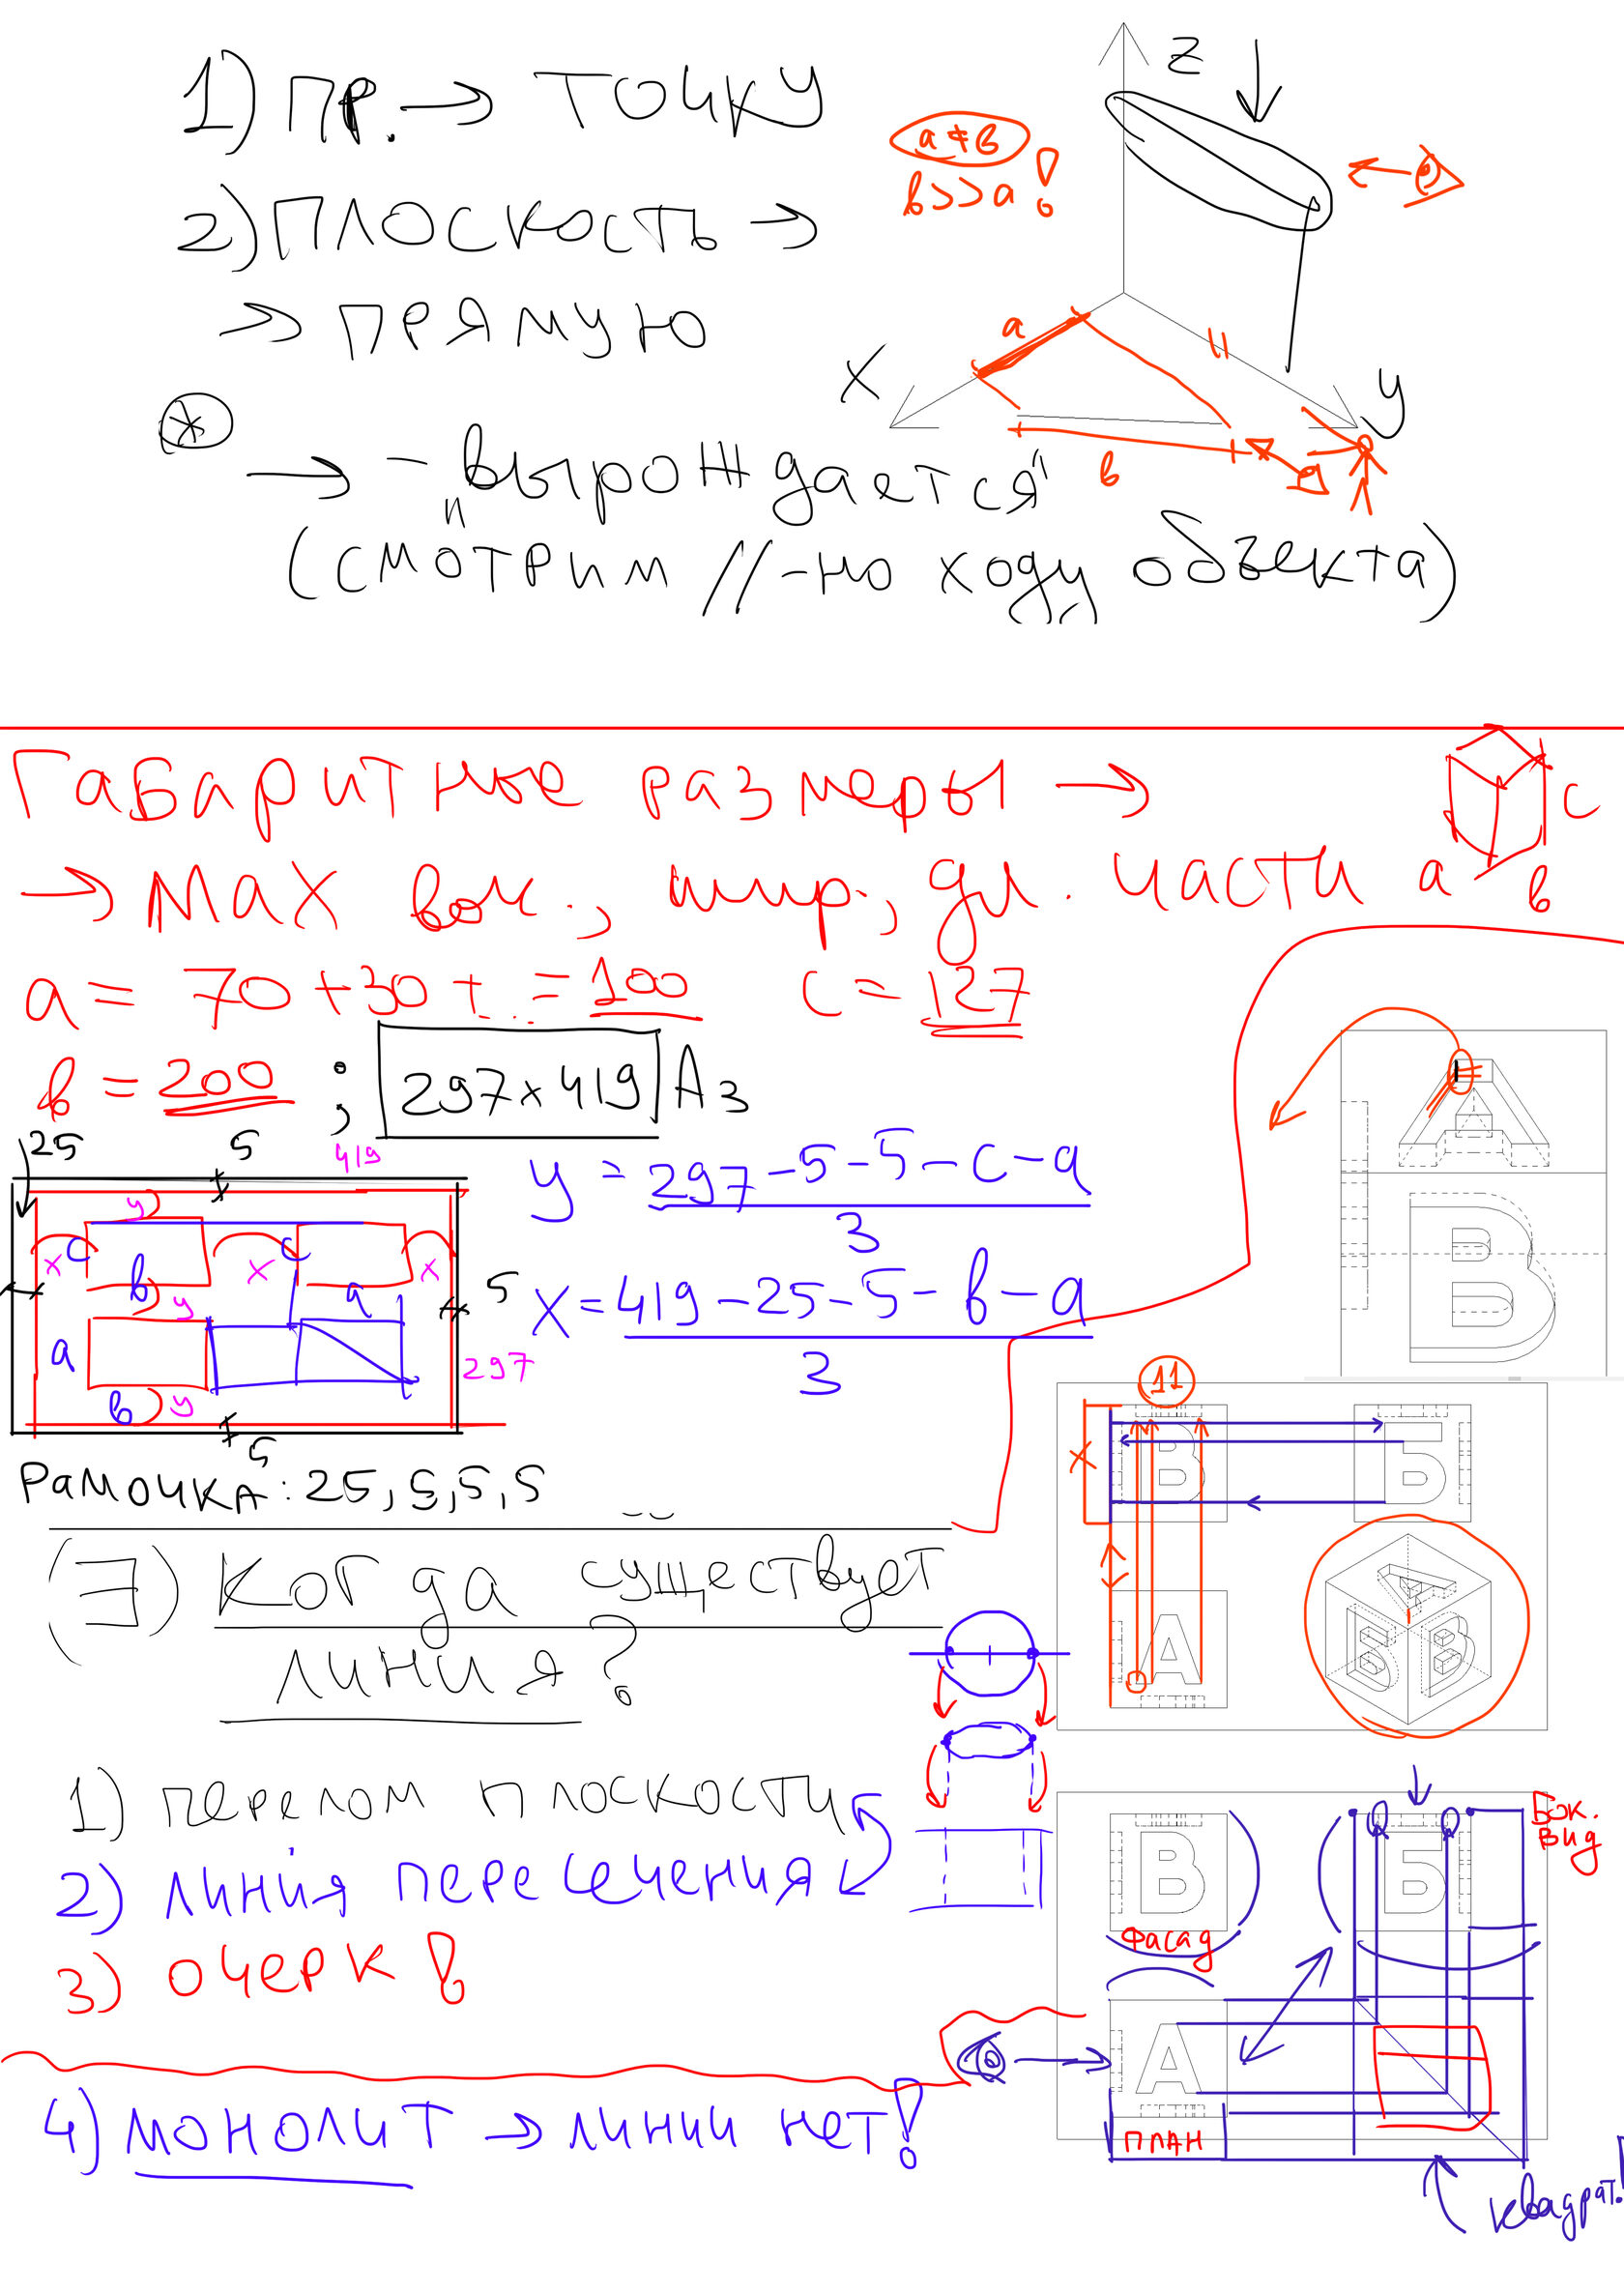 1) ПР. → ТОЧКУ
2) ПЛОСКОСТЬ →
→ ПРЯМУЮ
* → - „вырождается“
(смотрим //-но ходу объекта)
z
a ≠ в
в >> a !
a
x
y
в
Габаритные размеры →
→ MAX выс., шир., дл. части
a
в
c
a = 70 + 30 + ... = 100
c = 127
в = 200 ;
297 × 419 А3
25
5
419
y
x
c
x
c
x
в
y
a
5
a
297
в
y
5
y = 297 - 5 - 5 - c - a
3
x = 419 - 25 - 5 - в - a
3
Рамочка: 25, 5, 5, 5
(∃) Когда существует
линия?
1) перелом плоскости
2) линия пересечения
3) очерк !
4) монолит → линии нет!
А
В
11
x
В
Б
А
А
Б
В
В
Б
Бок.
вид
Фасад
А
ПЛАН
квадрат!